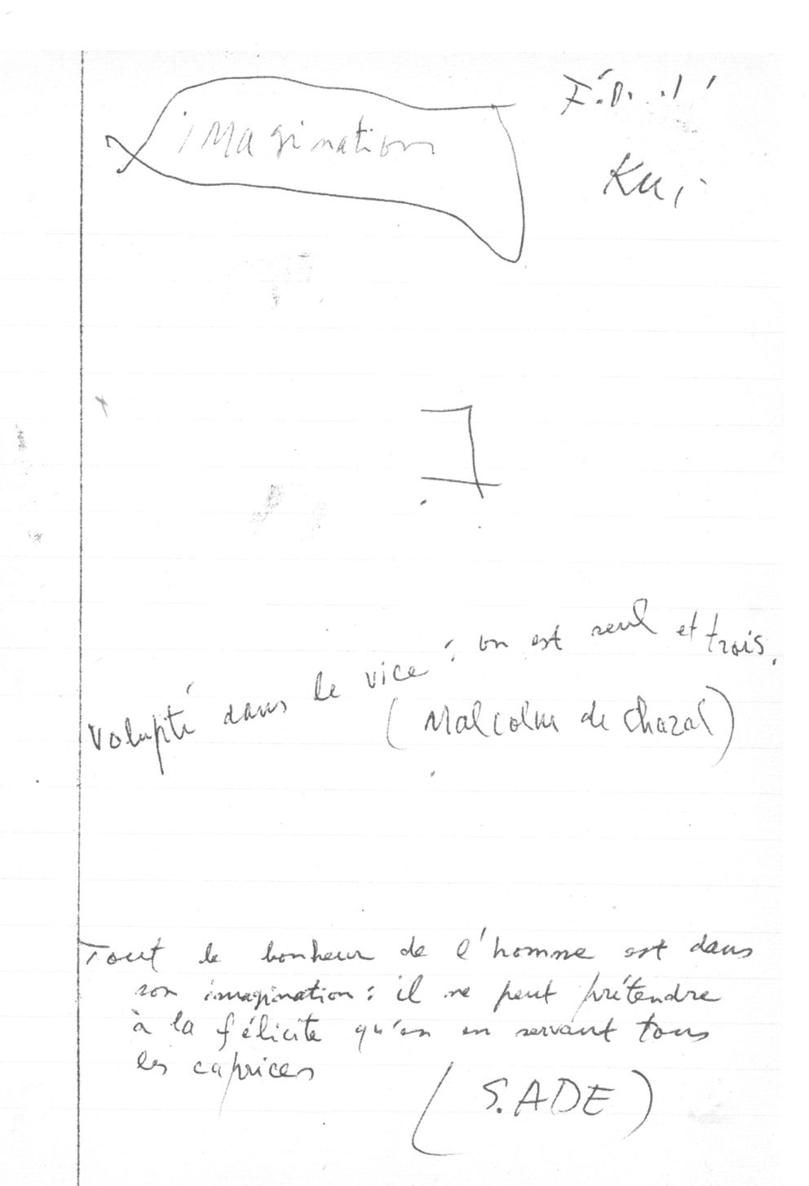 imagination
Volupté dans le vice : on est seul et trois.
(Malcolm de Chazal)
Tout le bonheur de l'homme est dans
son imagination : il ne peut prétendre
à la félicité qu'en en servant tous
les caprices
(S.ADE)